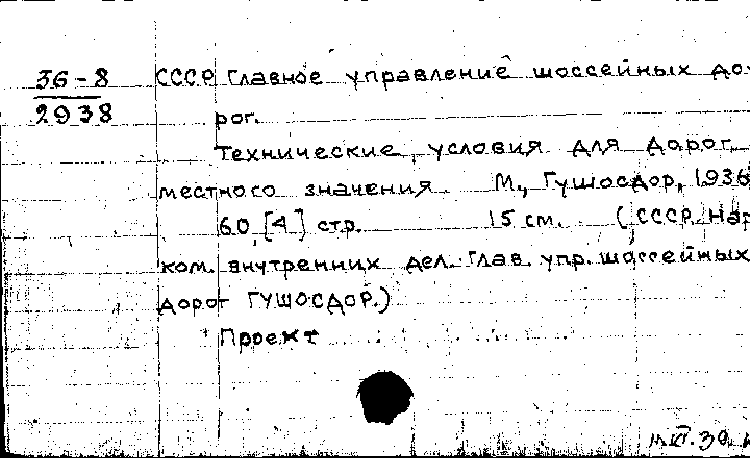 36-8
2938
СССР Главное управление шоссейных до-
рог.
Технические условия для дорог
местного значения М., Гушосдор, 1936
60, [4] стр. 15 см. (СССР. Нар.
ком. внутренних дел. Глав. упр. шоссейных
дорог ГУШОСДОР.)
Проект